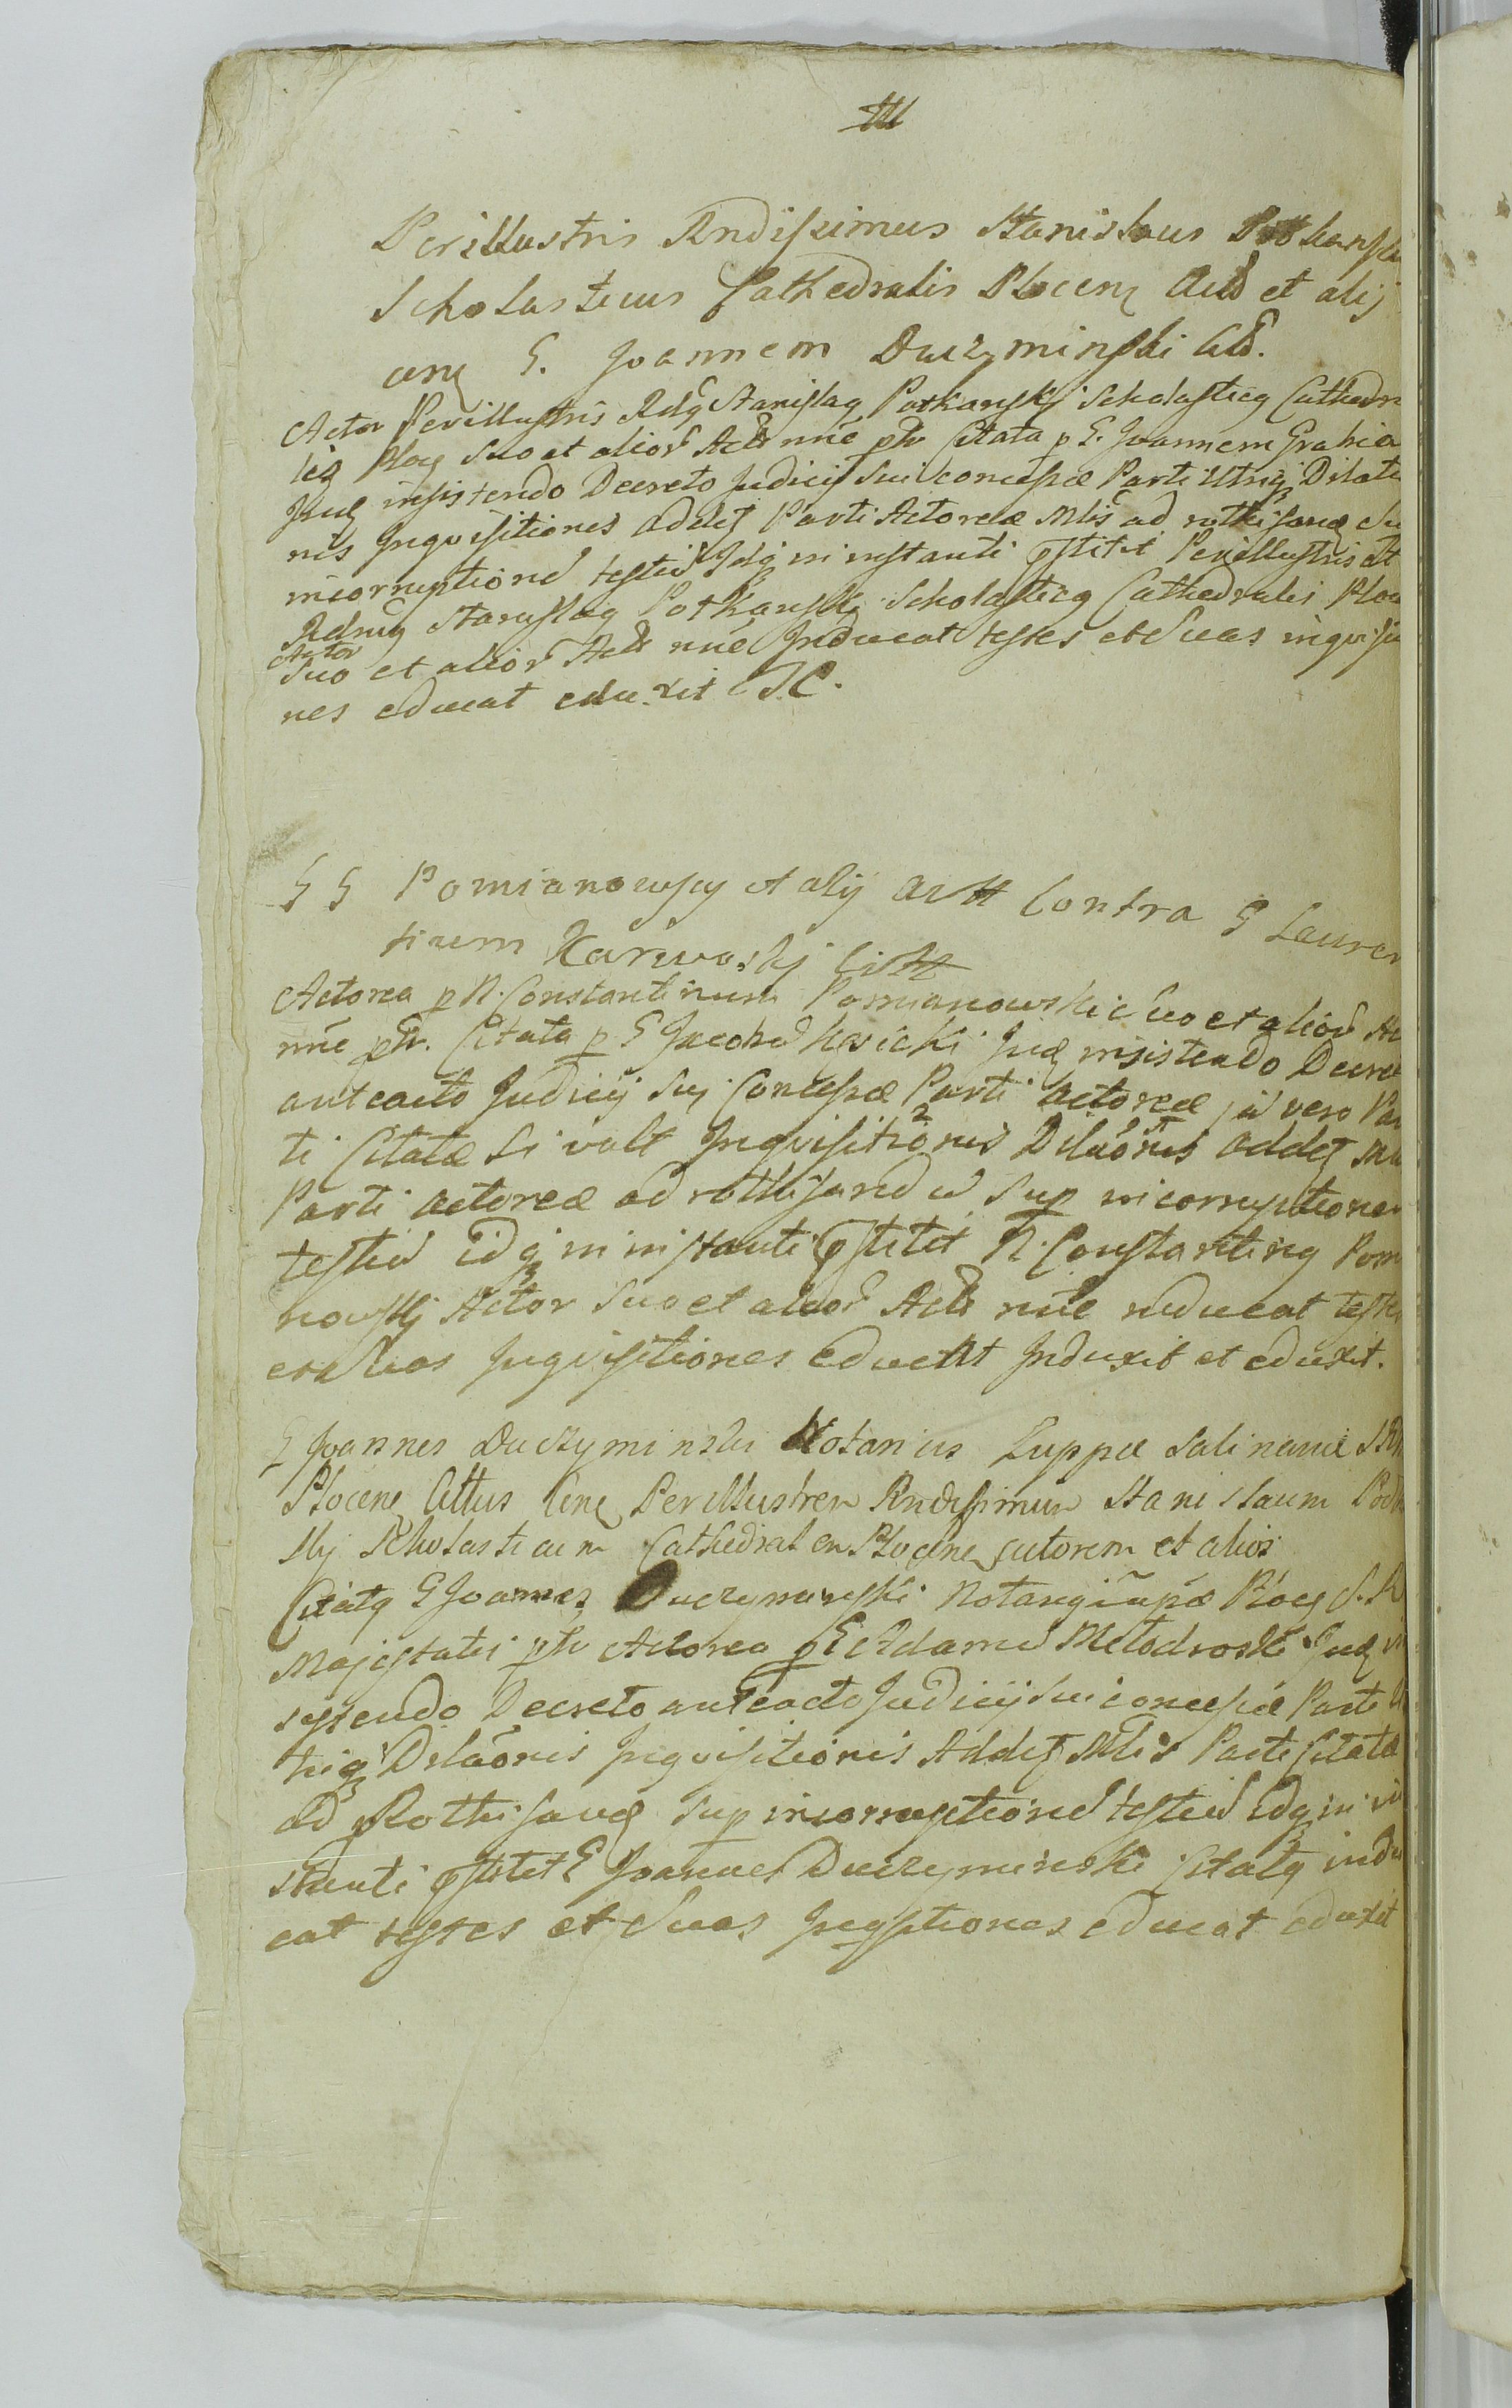 Perillustris Rndissimus Stanislaus Potkanski
Scholasticus Cathedralis Plocen Actt et alij
cum G. Joannem Duczyminski Citt.
Actor Perillustris Rdq Stanislaq Potkanskj Scholasticq Cathedra
lis Ploc suo et alior Actt nne ptr Citata p G. Joannem Grabia
Juq insistendo Decreto Judicij sui concessæ Parti Utriq Dilatio
nis Inquisitiones addes Parti Actoreæ Mtis ad rotthisand su
incorruptione testiu Idq in instanti pstitit Perillustris et
Rdmq Stanislaq Potkanskj Scholasticq Cathedralis Ploc
Actor
suo et alior Actt nne Inducat testes et Suas inquisi
nes educat eduxit
G G Pomianowscy et alij Actt Contra G Lauren
tium Karwoskj Citt
Actorea p N. Constantinum Pomianowski suo et alior Ac
nne ptr. Citata p G Jacobu Juq insistendo Decret
anteacto Judicij sui Concessæ Parti Actoreæ vero Par
ti Citatæ Si valt Inquisitionis Dilaonis addes
Parti Actoreæ ad rotthisand Sup incorruptione
testiu idq in instanti pstitit N. Constantinq Pomia
nowskj Actor suo et alior Actt nne inducat testes
et Suas Inquisitiones educat Induxit et eduxit.
G Joannes Duczyminski Notarius Zuppæ Salinariæ
Plocen Cittus cum Perillustrem Rndissimum Stanislaum Pot
skij Scholasticum Cathedralem Plocen Actorem et alios
Citatq G Joannes Duczyminski Ploc S. R
Majestatis ptr Actorea p G Adamu Juq in
sistendo Decreto anteacto Judicij sui concessæ Parti U
triq Dilaonis Inquisitionis Addes Mtis Parti Citatæ
ad Rothisand Sup incorruptione testiu idq in in
stanti pstitit G Joannes Duczyminski Citatq indu
cat testes et Suas Inqstiones educat eduxit